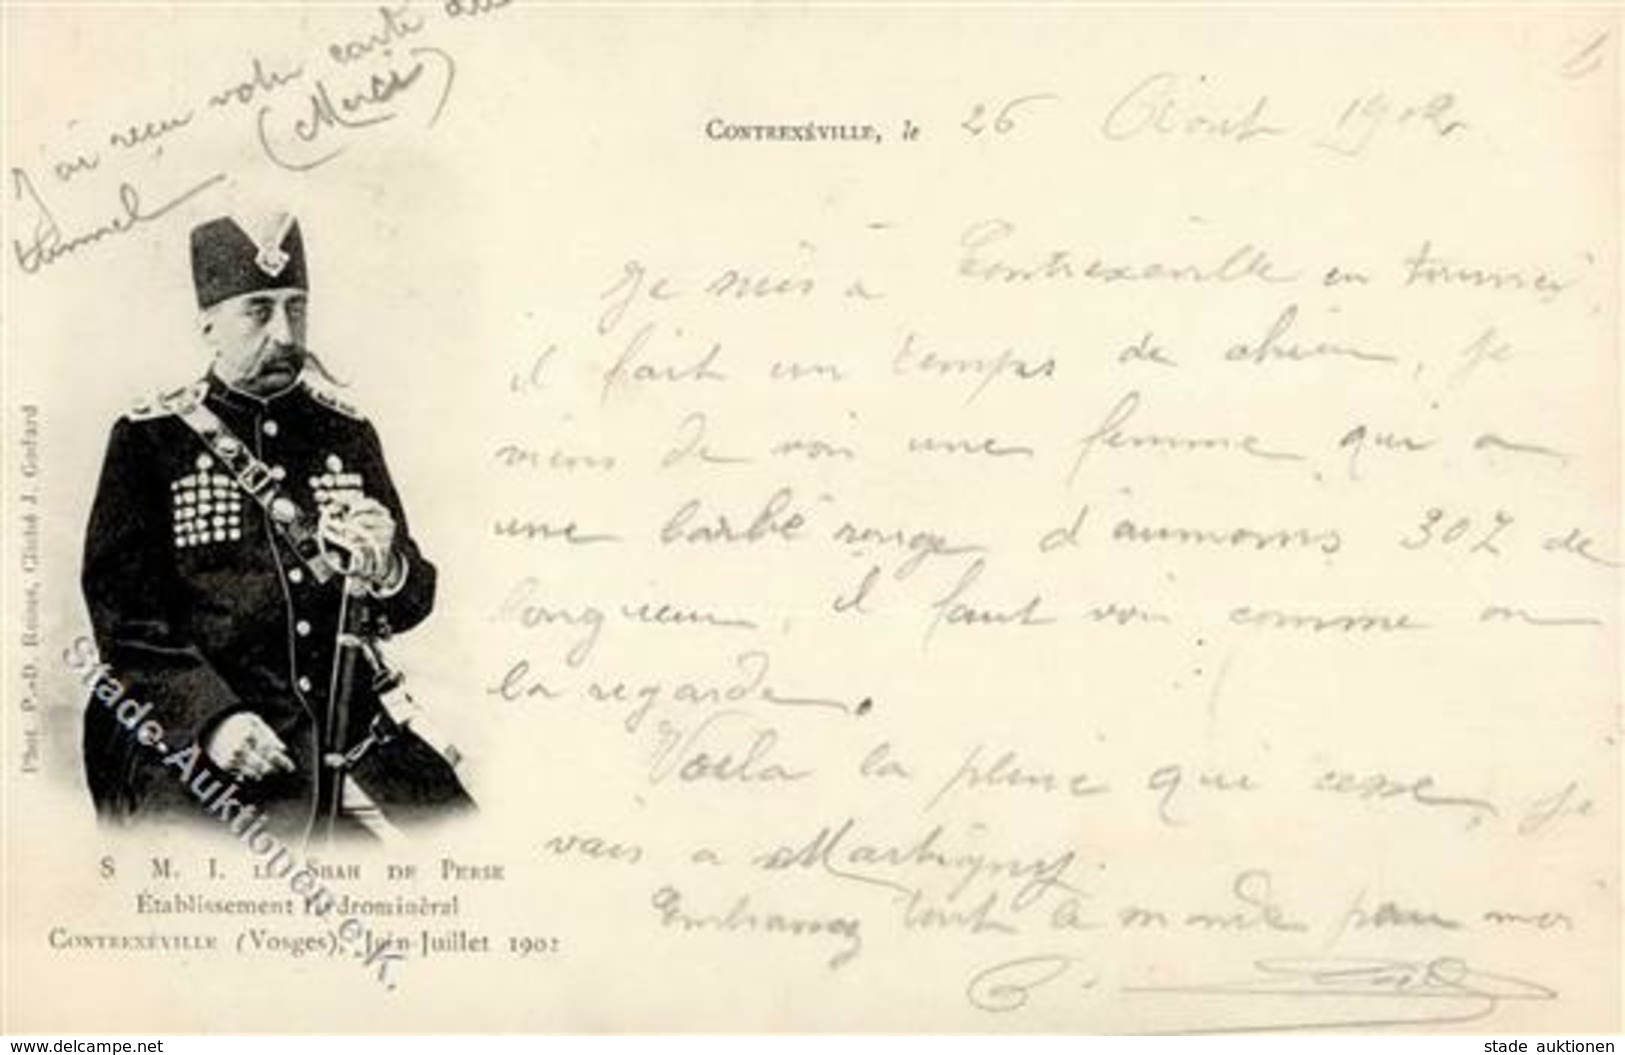 J'ai reçu votre carte du
tunnel (Merci)
CONTREXÉVILLE, le 26 Août 1902
Je suis à Contrexéville en tournée,
il fait un temps de chien, je
viens de voir une femme qui a
une barbe rouge d'aumoins 307 de
longueur, il faut voir comme on
la regarde.
Voila la pluie qui cesse, je
vais a Martigny.
Embrassez tout le monde pour moi
Phot. P.-D. Reunes, Cliché J. Godard
S. M. I. LE SHAH DE PERSE
Établissement Hydrominéral
CONTREXÉVILLE (Vosges), Juin-Juillet 1902
Stade-Auktionen o.K.
www.delcampe.net
stade auktionen